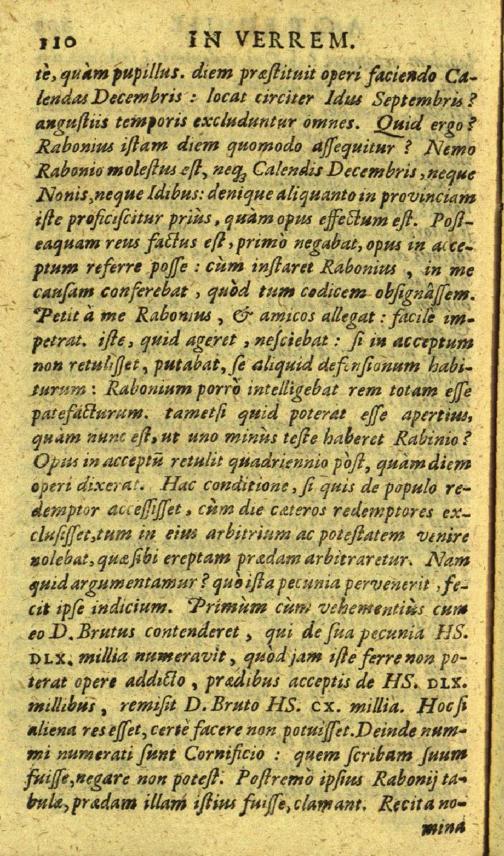 110 IN VERREM.
tè, quàm pupillus. diem præstituit operi faciendo Ca-
lendas Decembris : locat circiter Idus Septembris ?
angustiis temporis excluduntur omnes. Quid ergo ?
Rabonius istam diem quomodo assequitur ? Nemo
Rabonio molestus est, neq; Calendis Decembris, neque
Nonis, neque Idibus: denique aliquanto in provinciam
iste proficiscitur prius, quàm opus effectum est. Post-
eaquam reus factus est, primò negabat, opus in acce-
ptum referre posse : cùm instaret Rabonius , in me
causam conferebat , quòd tum codicem obsignâssem.
Petit à me Rabonius , & amicos allegat : facilè im-
petrat. iste, quid ageret , nesciebat : si in acceptum
non retulisset, putabat, se aliquid defensionum habi-
turum : Rabonium porrò intelligebat rem totam esse
patefacturum. tametsi quid poterat esse apertius,
quàm nunc est, ut uno minùs teste haberet Rabinio ?
Opus in acceptū retulit quadriennio pòst, quàm diem
operi dixerat. Hac conditione, si quis de populo re-
demptor accessisset, cùm die cæteros redemptores ex-
clusisset, tum in eius arbitrium ac potestatem venire
nolebat, quæ sibi ereptam prædam arbitraretur. Nam
quid argumentamur ? quo ista pecunia pervenerit , fe-
cit ipse indicium. Primùm cùm vehementiùs cum
eo D. Brutus contenderet , qui de sua pecunia HS.
DLX. millia numeravit , quòd jam iste ferre non po-
terat opere addicto , prædibus acceptis de HS. DLX.
millibus , remisit D. Bruto HS. CX. millia. Hoc si
aliena res esset, certè facere non potuisset. Deinde num-
mi numerati sunt Cornificio : quem scribam suum
fuisse, negare non potest. Postremò ipsius Rabonij ta-
bulæ, prædam illam istius fuisse, clamant. Recita no-
mina